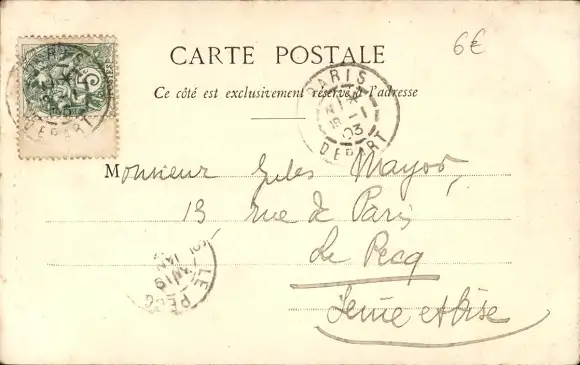 CARTE POSTALE
6€
Ce côté est exclusivement réservé à l'adresse
PARIS
DEPART
PARIS
18
1 - 1
03
DEPART
Monsieur Jules Mayor,
13, rue de Paris
Le Pecq
Seine et Oise
LE PECQ